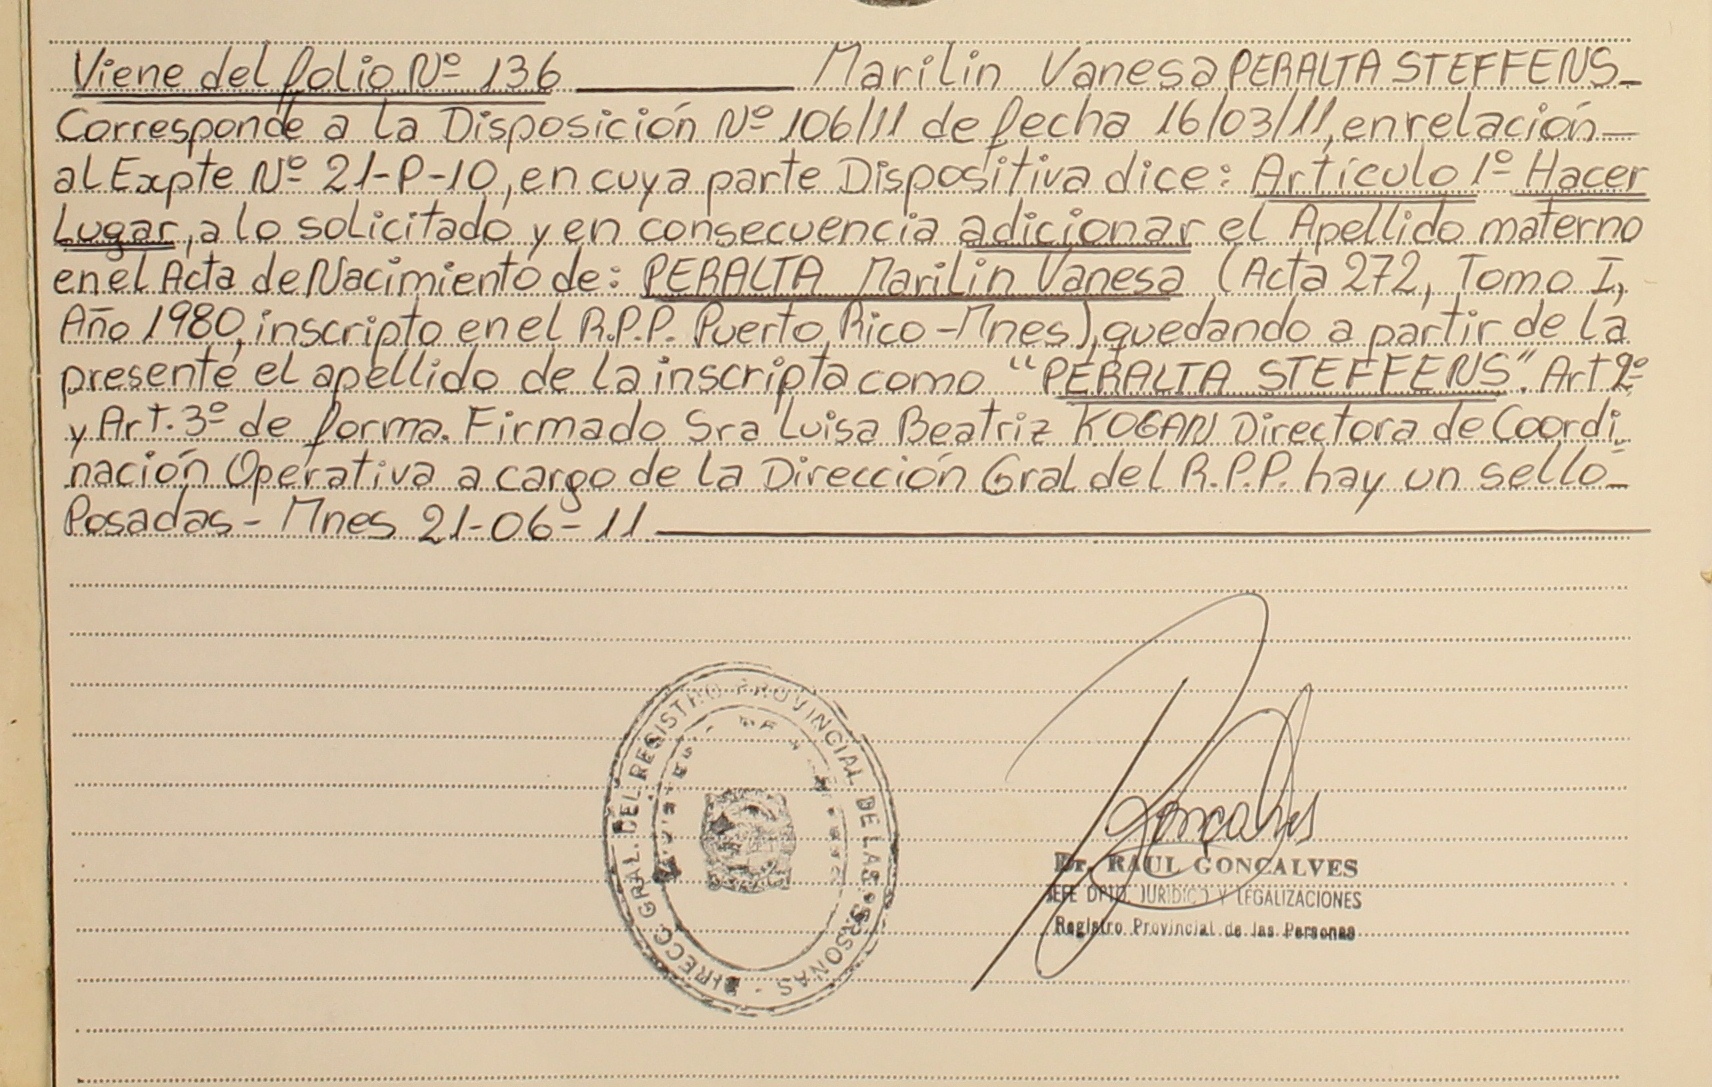 Viene del folio Nº 136 Marilin Vanesa PERALTA STEFFENS
Corresponde a la Disposición Nº 106/11 de fecha 16/03/11, en relación
al Expte Nº 21-P-10, en cuya parte Dispositiva dice: Artículo 1º Hacer
Lugar, a lo solicitado y en consecuencia adicionar el Apellido materno
en el Acta de Nacimiento de: PERALTA Marilin Vanesa (Acta 272, Tomo I,
Año 1980, inscripto en el R.P.P. Puerto Rico - Mnes), quedando a partir de la
presente el apellido de la inscripta como "PERALTA STEFFENS". Art 2º
y Art. 3º de forma. Firmado Sra Luisa Beatriz KOGAN Directora de Coordi
nación Operativa a cargo de la Dirección Gral del R.P.P. hay un sello
Posadas - Mnes 21-06-11
DIRECC. GRAL. DEL REGISTRO PROVINCIAL DE LAS PERSONAS
Gonçalves
Dr. RAUL GONCALVES
JEFE DPTO. JURIDICO Y LEGALIZACIONES
Registro Provincial de las Personas